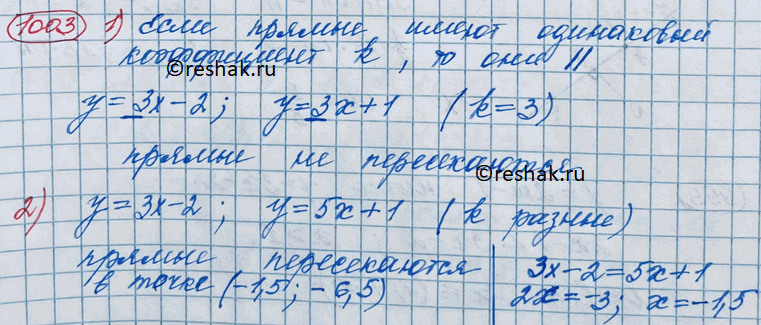 1003 1) Если прямые имеют одинаковый
коэффициент k, то они ||
©reshak.ru
y=3x-2; y=3x+1 (k=3)
прямые не пересекаются.
©reshak.ru
2) y=3x-2; y=5x+1 (k разные)
прямые пересекаются
в точке (-1,5; -6,5)
3x-2=5x+1
2x=-3; x=-1,5